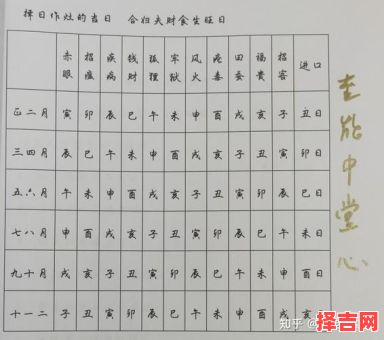 择日作灶的吉日 合妇夫财食生旺日
赤眼 招瘟 疾病 钱财 孤狸 牢狱 风火 疮毒 田蚕 福贵 招客 进口
正二月 寅 卯 辰 巳 午 未 申 酉 戌 亥 子 丑日
三四月 辰 巳 午 未 申 酉 戌 亥 子 丑 寅 卯日
五六月 午 未 申 酉 戌 亥 子 丑 寅 卯 辰 巳日
七八月 申 酉 戌 亥 子 丑 寅 卯 辰 巳 午 未日
九十月 戌 亥 子 丑 寅 卯 辰 巳 午 未 申 酉日
十一二 子 丑 寅 卯 辰 巳 午 未 申 酉 戌 亥
能中堂心
知乎
择吉网